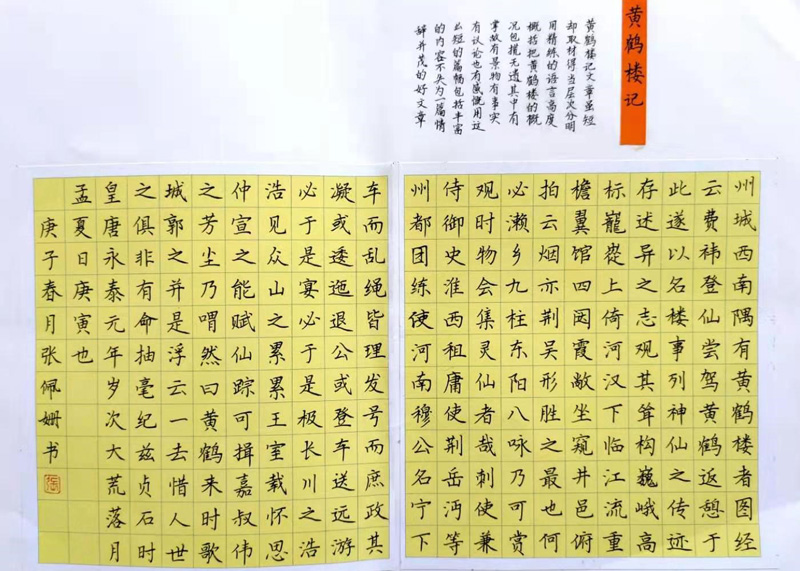 黄鹤楼记
黄鹤楼记文章虽短
却取材得当层次分明
用精练的语言高度
概括把黄鹤楼的概
况包揽无遗其中有
掌故有景物有事实
有议论也有感慨用这
么短的篇幅包括丰富
的内容不失为一篇情
辞并茂的好文章
州城西南隅有黄鹤楼者图经
云费祎登仙尝驾黄鹤返憩于
此遂以名楼事列神仙之传迹
存述异之志观其耸构巍峨高
标巃嵸上倚河汉下临江流重
檐翼馆四闼霞敞坐窥井邑俯
拍云烟亦荆吴形胜之最也何
必濑乡九柱东阳八咏乃可赏
观时物会集灵仙者哉刺使兼
侍御史淮西租庸使荆岳沔等
州都团练使河南穆公名宁下
车而乱绳皆理发号而庶政其
凝或逶迤退公或登车送远游
必于是宴必于是极长川之浩
浩见众山之累累王室载怀思
仲宣之能赋仙踪可揖嘉叔伟
之芳尘乃喟然曰黄鹤来时歌
城郭之并是浮云一去惜人世
之俱非有命抽毫纪兹贞石时
皇唐永泰元年岁次大荒落月
孟夏日庚寅也
庚子春月张佩姗书